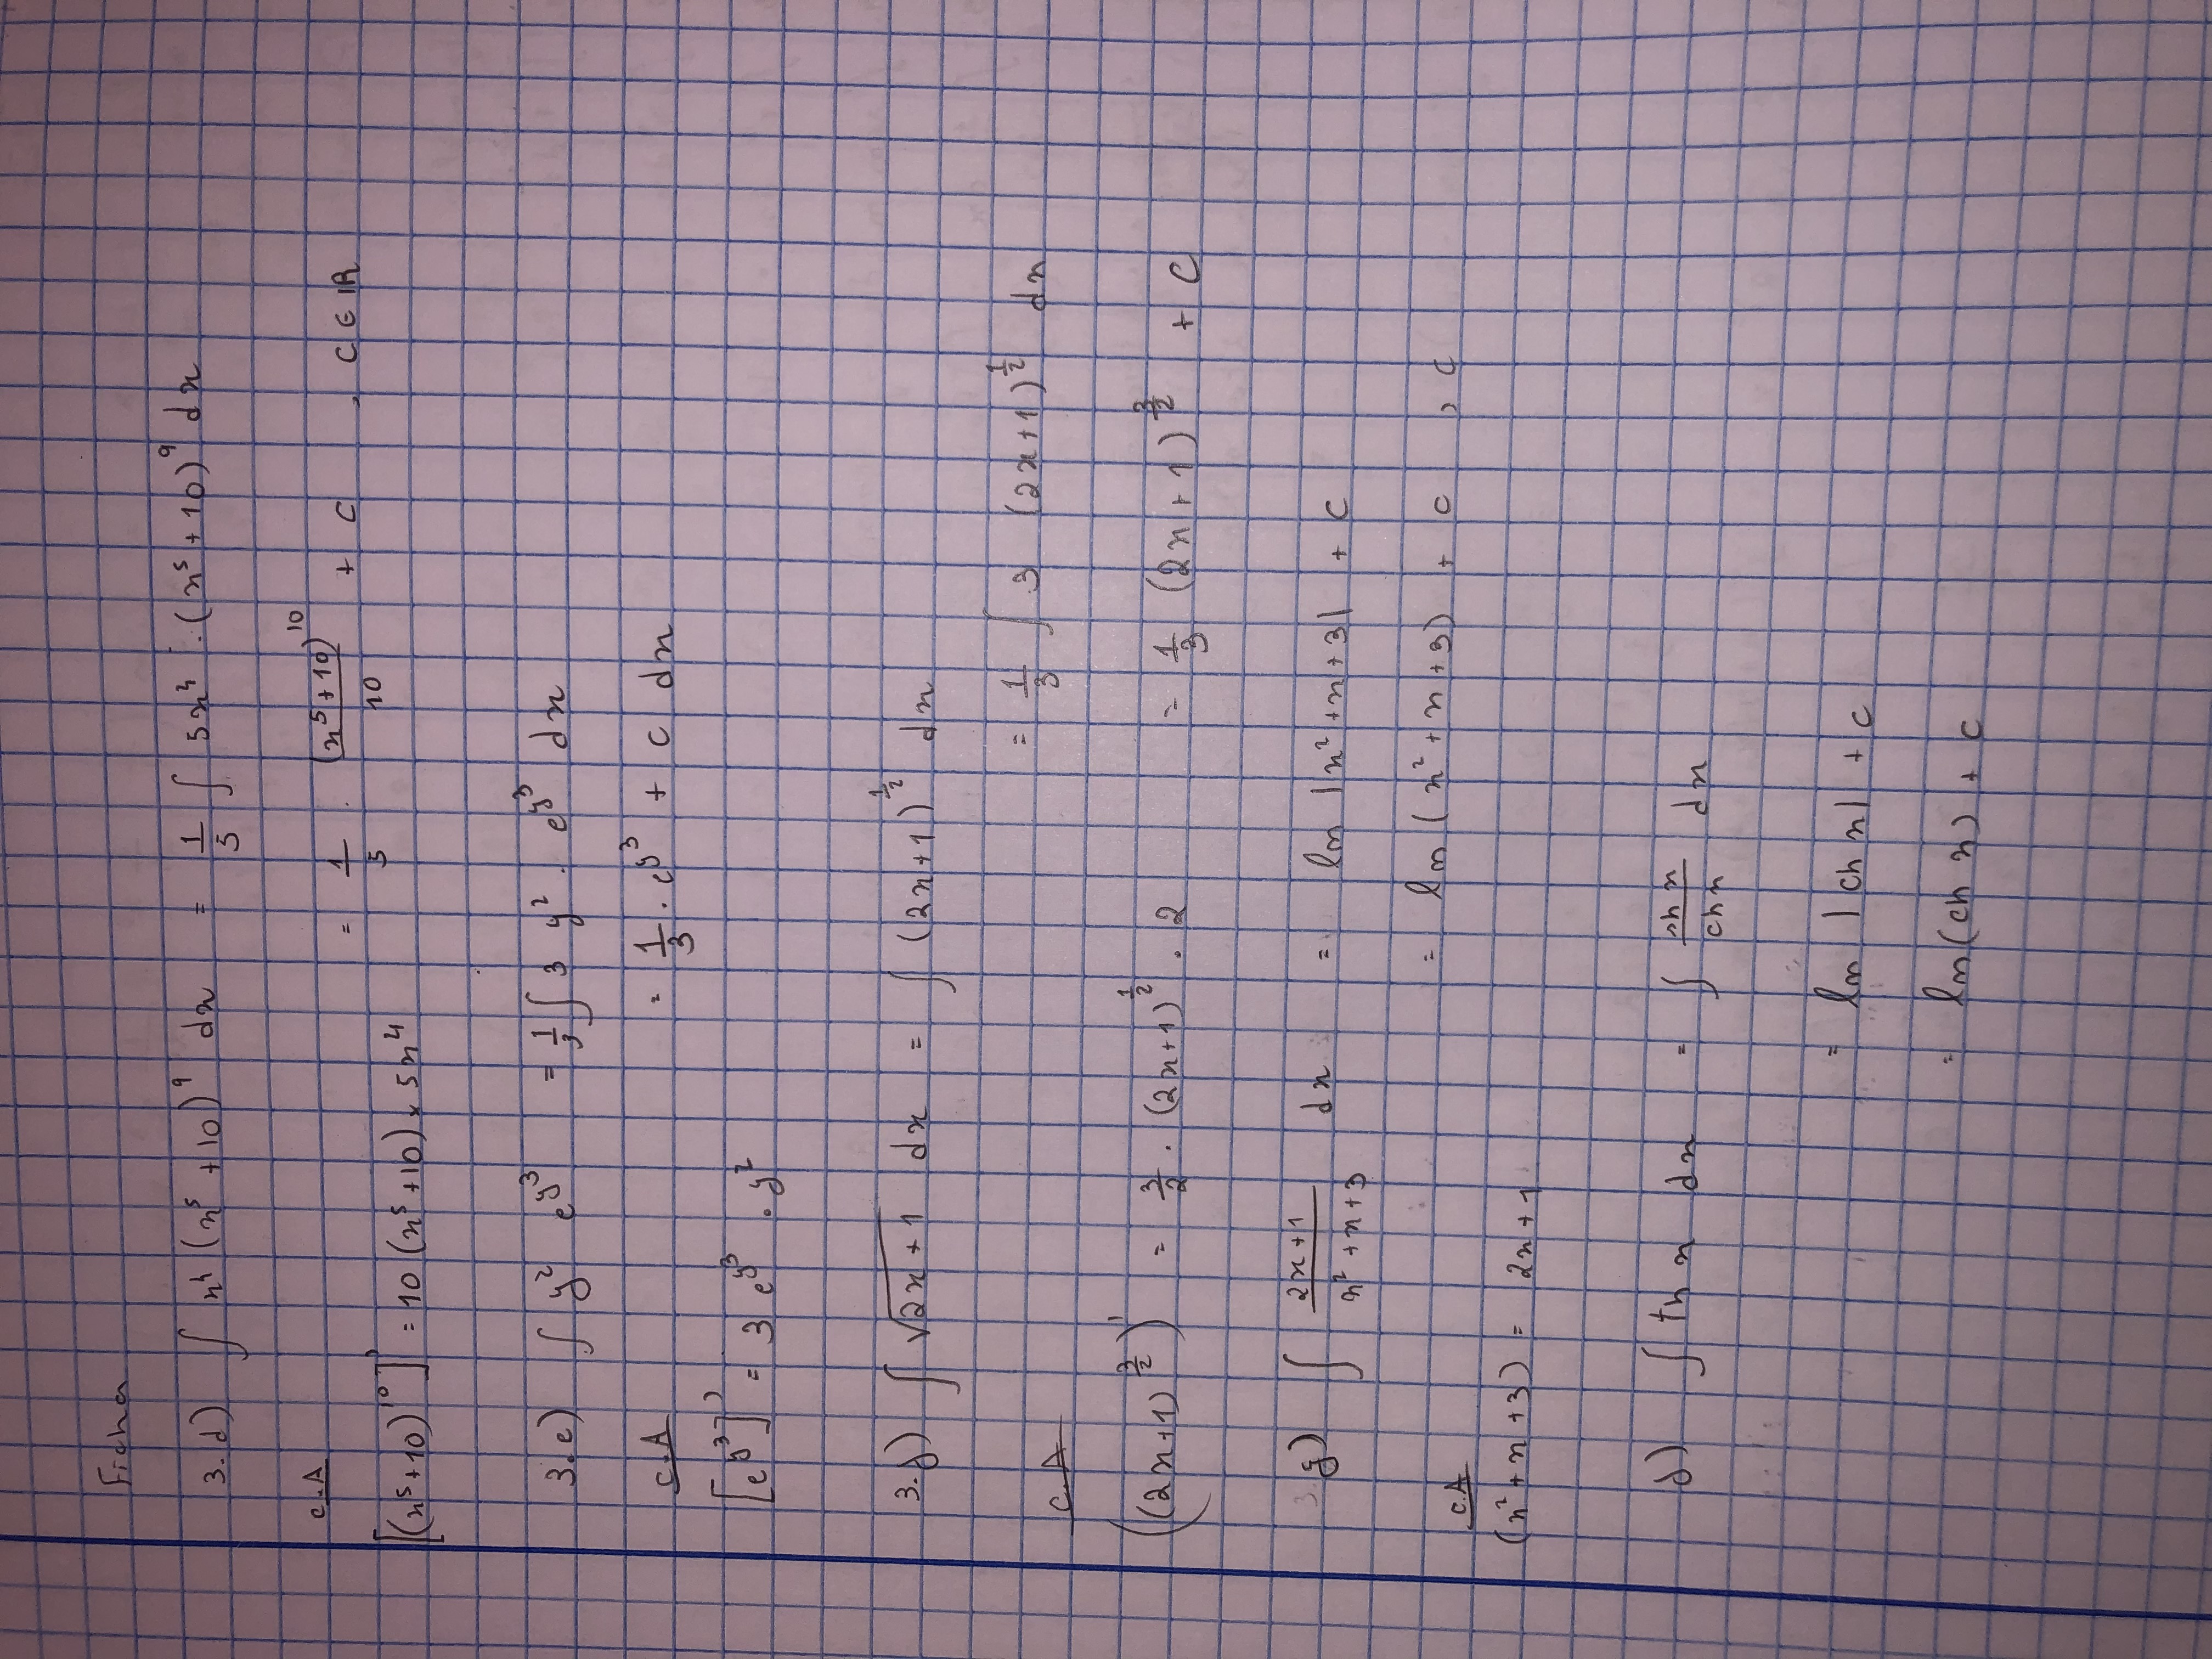 Ficha
3. d) ∫ x⁴ (x⁵ + 10)⁹ dx = 1/5 ∫ 5x⁴ · (x⁵ + 10)⁹ dx
c.A
= 1/5 · (x⁵ + 10)¹⁰/10 + C , C ∈ IR
[(x⁵ + 10)¹⁰]' = 10 (x⁵ + 10) × 5x⁴
3. e) ∫ y² e^y³ = 1/3 ∫ 3 y² · e^y³ dx
c.A
= 1/3 · e^y³ + C dx
[e^y³]' = 3 e^y³ · y²
3. f) ∫ √(2x + 1) dx = ∫ (2x + 1)^(1/2) dx
= 1/3 ∫ 3 (2x + 1)^(1/2) dx
c.A
((2x + 1)^(3/2))' = 3/2 · (2x + 1)^(1/2) · 2
= 1/3 (2x + 1)^(3/2) + C
3. g) ∫ (2x + 1)/(x² + x + 3) dx = ln |x² + x + 3| + C
= ln (x² + x + 3) + C , C
c.A
(x² + x + 3) = 2x + 1
d) ∫ th x dx = ∫ sh x/ch x dx
= ln |ch x| + C
= ln (ch x) + C